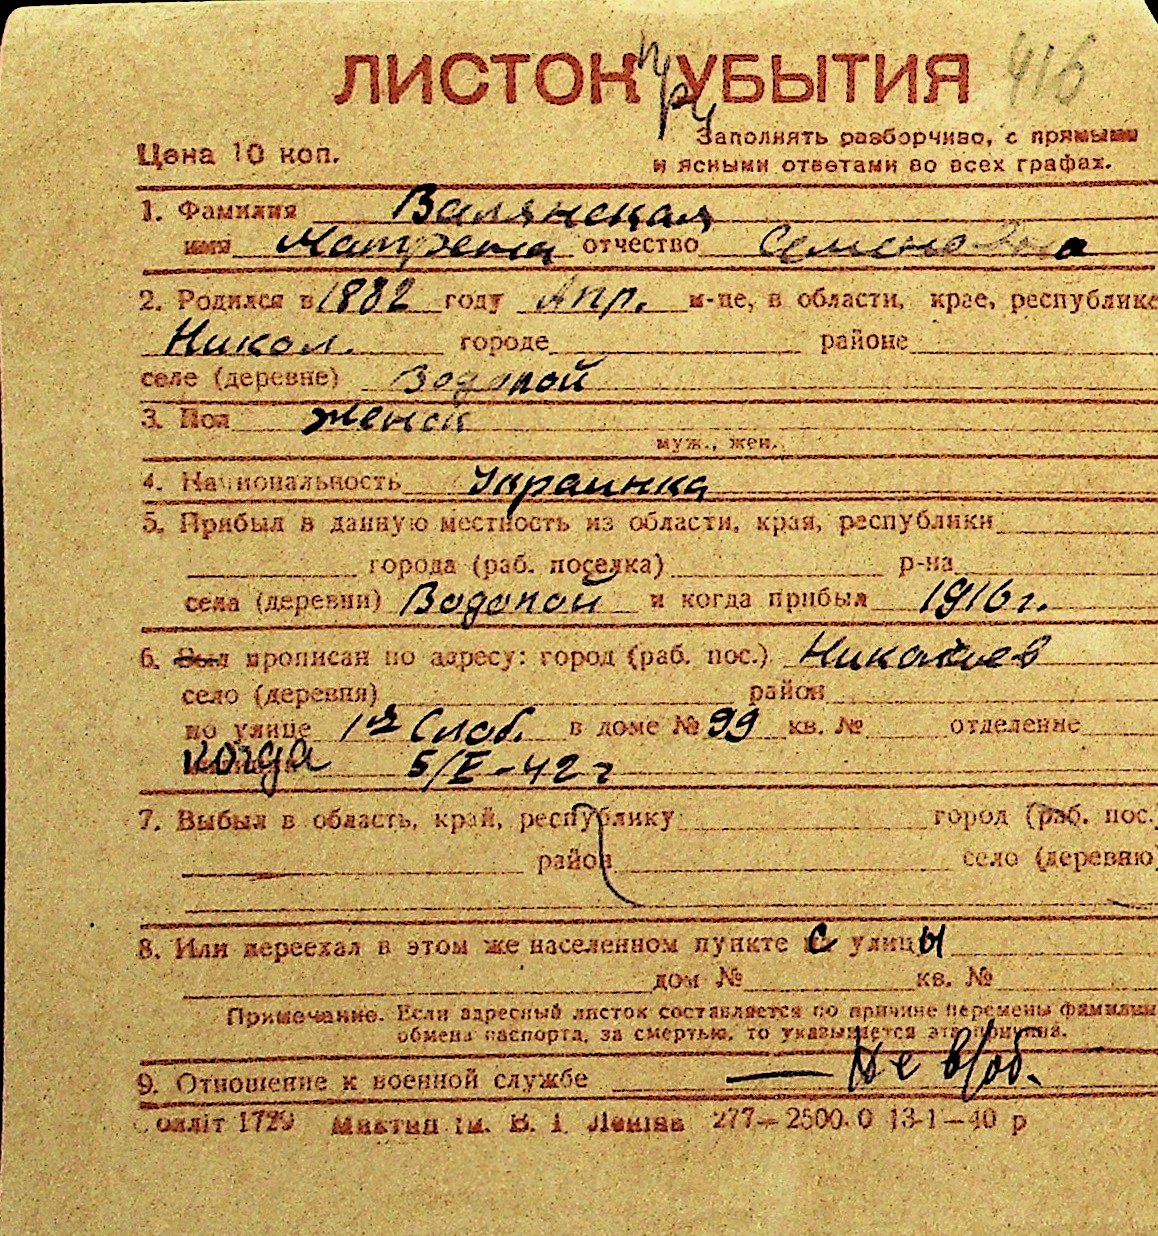 ЛИСТОК УБЫТИЯ
при
416
Цена 10 коп.
Заполнять разборчиво, с прямыми
и ясными ответами во всех графах.
1. Фамилия Валянская
имя Матрена отчество Семеновна
2. Родился в 1882 году Апр. м-це, в области, крае, республике
Никол. городе районе
селе (деревне) Водопой
3. Пол женск
муж., жен.
4. Национальность Украинка
5. Прибыл в данную местность из области, края, республики
города (раб. поселка) р-на
села (деревни) Водопой и когда прибыл 1916 г.
6. Был прописан по адресу: город (раб. пос.) Николаев
село (деревня) район
по улице 1я Слоб. в доме № 99 кв. № отделение
когда 5/I-42 г
7. Выбыл в область, край, республику город (раб. пос.)
район село (деревню)
8. Или переехал в этом же населенном пункте с улицы
дом № кв. №
Примечание. Если адресный листок составляется по причине перемены фамилии
обмена паспорта, за смертью, то указывается эта причина.
9. Отношение к военной службе — Не в/об.
Облліт 1729 ім. В. І. Леніна 277—2500.0 13-1—40 р